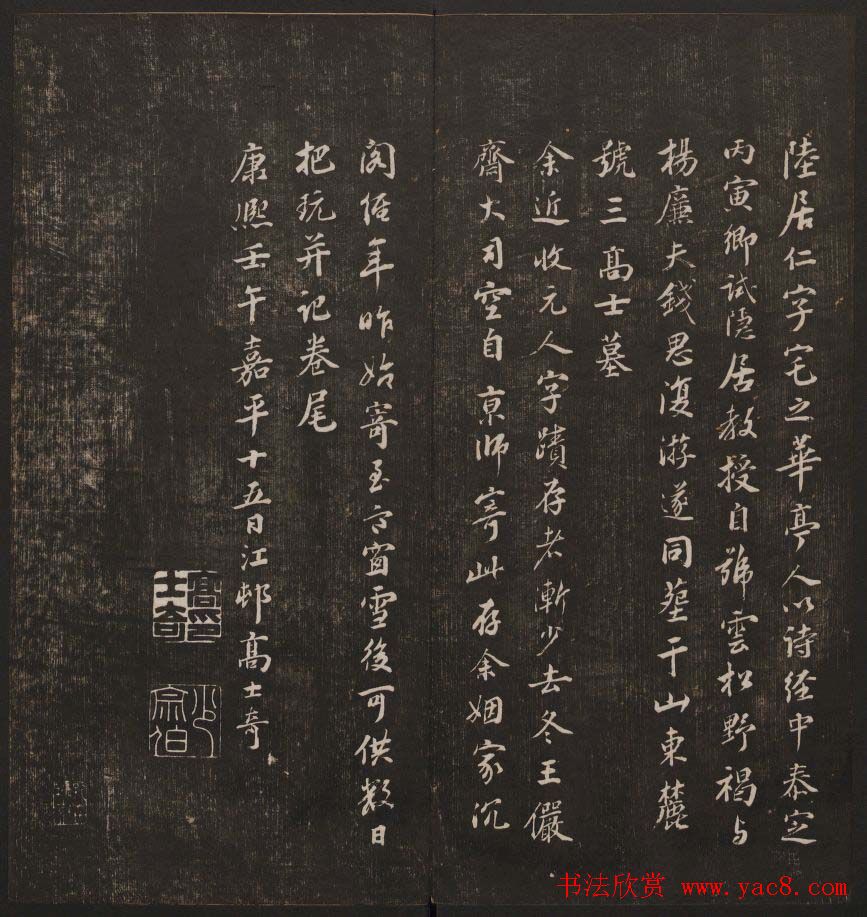 陸居仁字宅之華亭人以詩經中泰定
丙寅鄉試隱居教授自號雲松野褐与
楊廉夫錢思復游遂同葬干山東麓
號三高士墓
余近收元人字蹟存者漸少去冬王儼
齋大司空自京師寄此存余姻家沉
閣經年昨始寄至寒窗雪後可供數日
把玩并記卷尾
康熙壬午嘉平十五日江邨高士奇
高士奇印
宗伯
书法欣赏 www.yac8.com